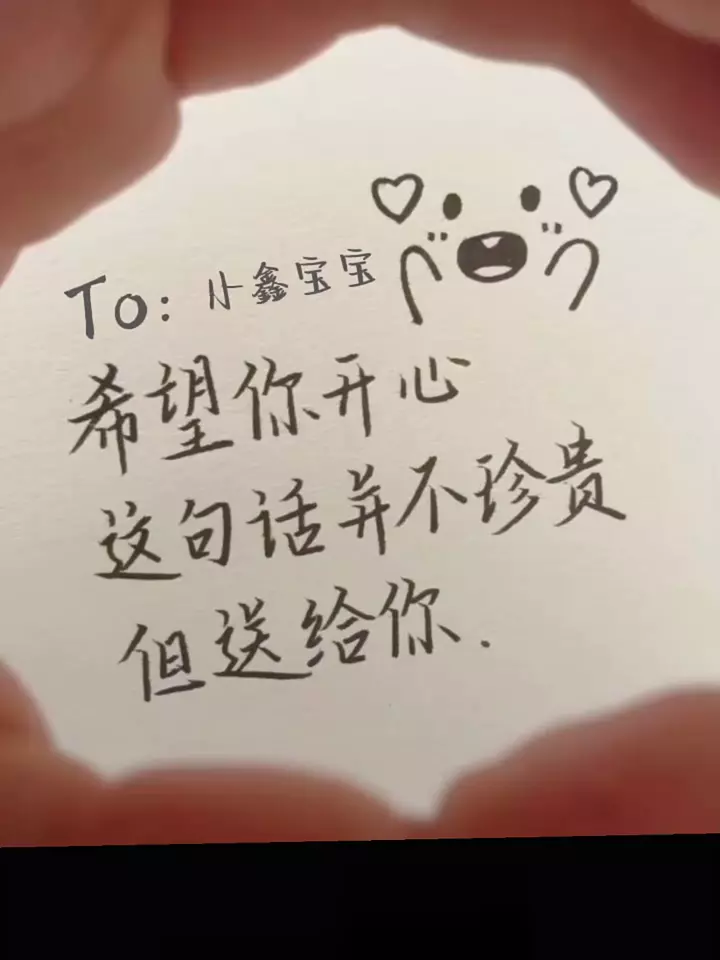 To: 小鑫宝宝
希望你开心
这句话并不珍贵
但送给你.